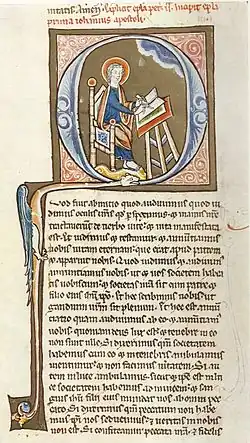 nitatis. Amen. Explicit epla petri .ii. Incipit epla
prima iohannis apostoli
Quod fuit ab initio quod audiuimus quod ui
dimus oculis nris qd perspeximus & manus nre
tractauerunt de uerbo uite & uita manifesta
est. Et uidimus & testamur & annuntiamus
uobis uitam eternam que erat apud patrem
& apparuit nobis. Quod uidimus & audiuimus
annuntiamus uobis ut & uos societatem habe
atis nobiscum & societas nra sit cum patre &
filio eius ihu xpo. Et hec scribimus uobis ut
gaudium urm sit plenum. Et hec est annun
tiatio quam audiuimus ab eo & annuntiamus
uobis quoniam deus lux est & tenebre in eo
non sunt ulle. Si dixerimus qm societatem
habemus cum eo & in tenebris ambulamus
mentimur & non facimus ueritatem. Si au
tem in luce ambulamus sicut & ipse est in lu
ce societatem habemus ad inuicem & san
guis ihu filii eius mundat nos ab omni pec
cato. Si dixerimus qm peccatum non habe
mus ipsi nos seducimus & ueritas in nobis
non est. Si confiteamur peccata nra fidelis